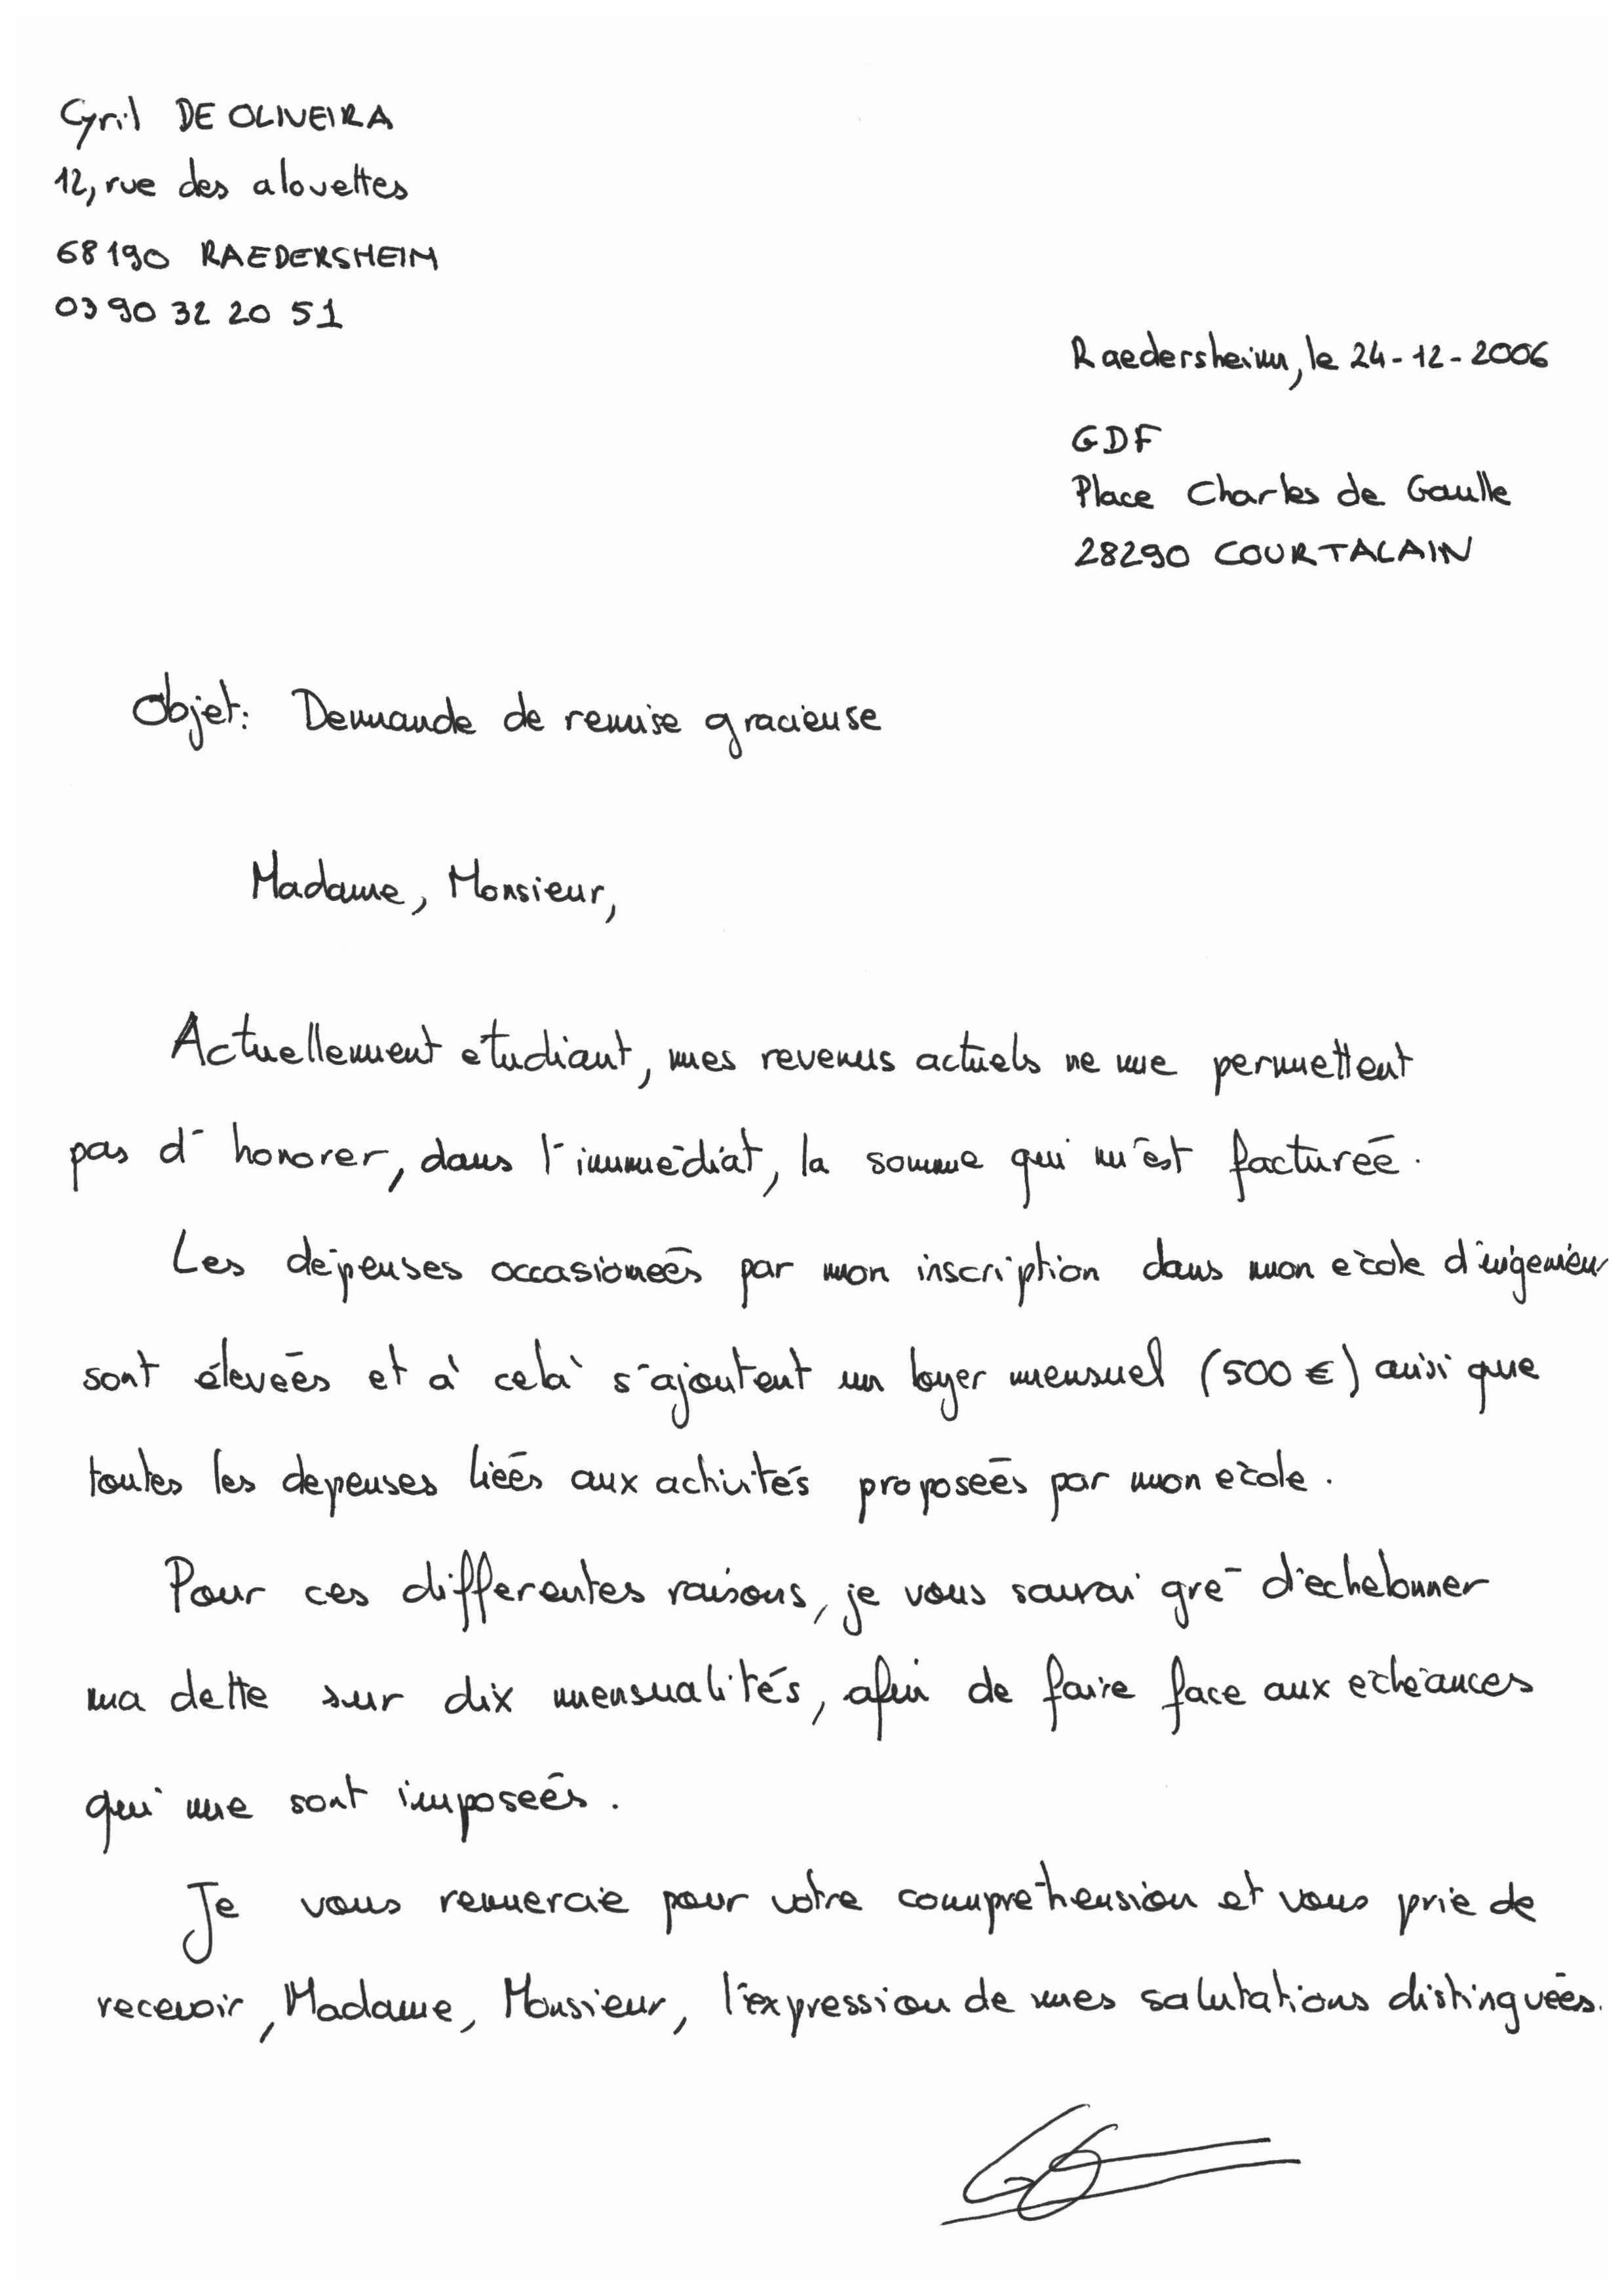 Cyril DE OLIVEIRA
12, rue des alouettes
68190 RAEDERSHEIM
03 90 32 20 51
Raedersheim, le 24-12-2006
GDF
Place Charles de Gaulle
28290 COURTALAIN
Objet: Demande de remise gracieuse
Madame, Monsieur,
Actuellement etudiant, mes revenus actuels ne me permettent
pas d'honorer, dans l'immédiat, la somme qui m'est facturée.
Les dépenses occasionées par mon inscription dans mon école d'ingénieur
sont élevées et à celà s'ajoutent un loyer mensuel (500 €) ainsi que
toutes les depenses liées aux activités proposées par mon école.
Pour ces differentes raisons, je vous saurai gré d'echelonner
ma dette sur dix mensualités, afin de faire face aux échéances
qui me sont imposées.
Je vous remercie pour votre compréhension et vous prie de
recevoir, Madame, Monsieur, l'expression de mes salutations distinguées.